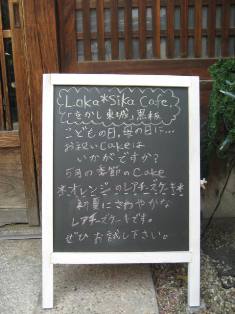 Laka*Sika Cafe,
こどもの日,母の日に...
お祝いCakeは
いかがですか?
5月の季節のCake
*オレンジのレアチーズケーキ*
初夏にさわやかな
レアチーズケーキです。
ぜひお試し下さい。